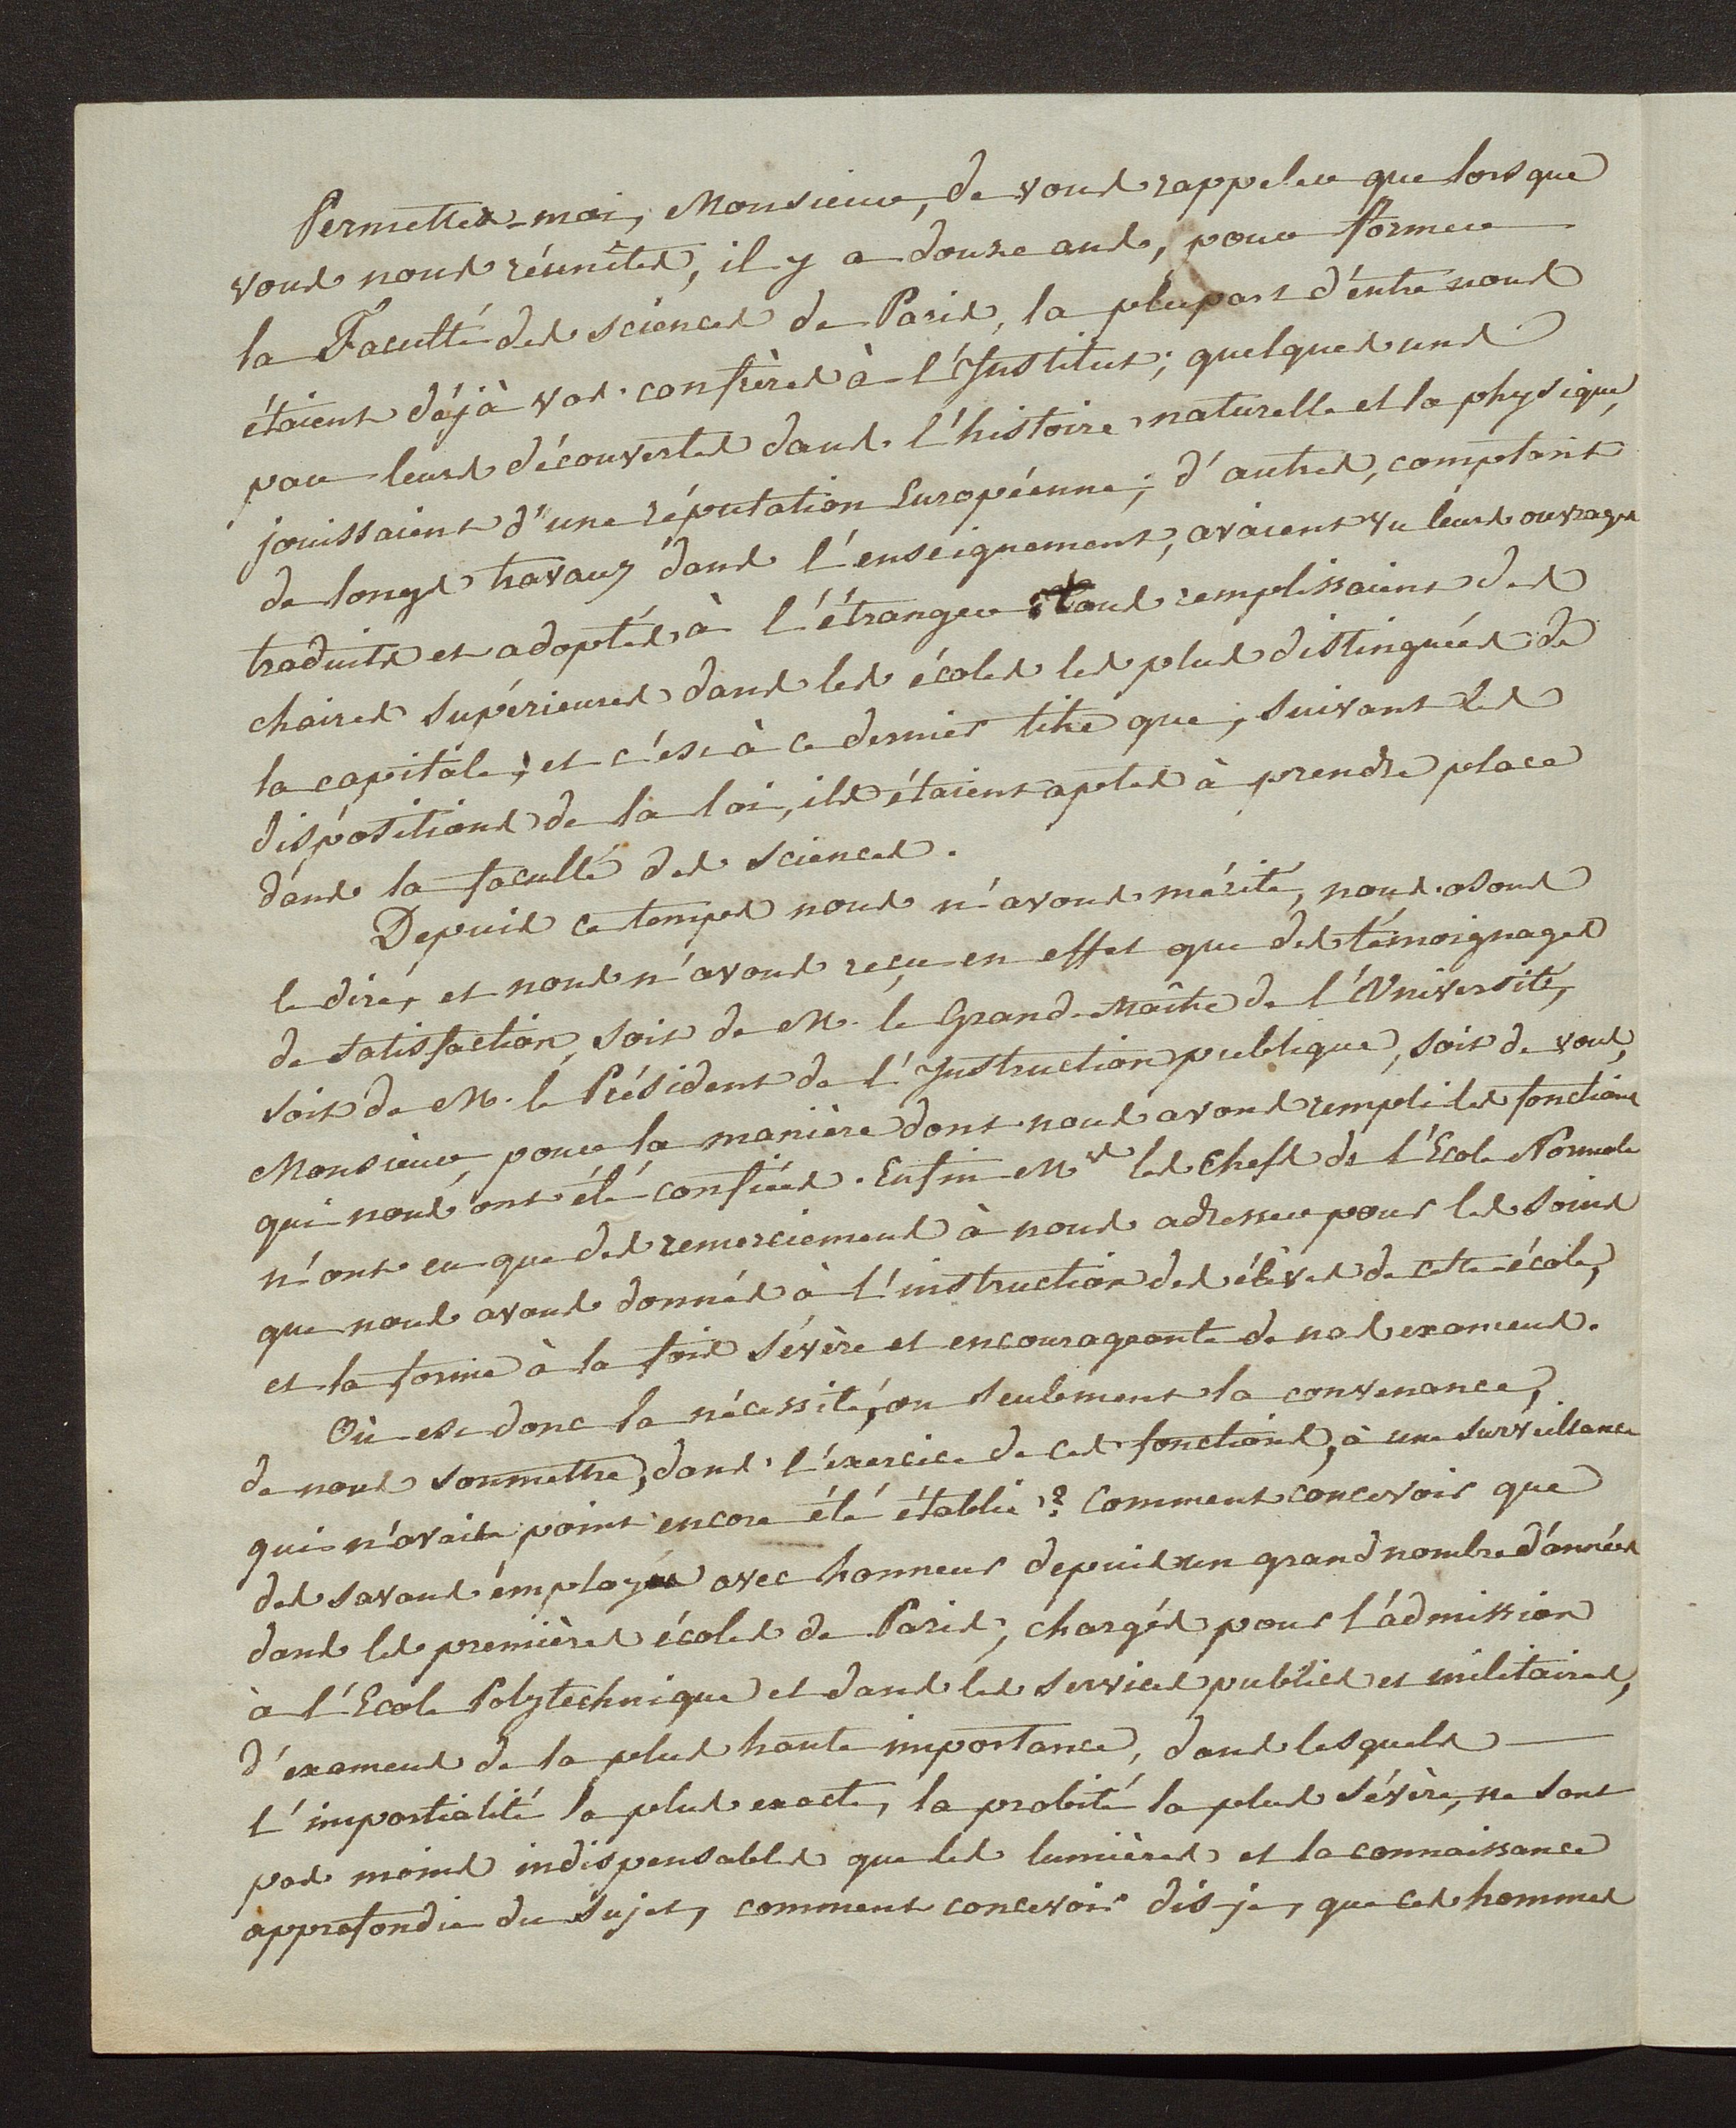 Permettez-moi, Monsieur, de vous rappeler que lorsque
vous nous réunîtes, il y a douze ans, pour former
la Faculté des sciences de Paris, la plupart d'entre nous
étaient déjà vos confrères à l'Institut; quelques uns
par leurs découvertes dans l'histoire naturelle et la physique,
jouissaient d'une réputation Européenne; d'autres, comptant
de longs travaux dans l'enseignement, avaient vu leurs ouvrages
traduits et adoptés à l'étranger; tous remplissaient des
chaires supérieures dans les écoles les plus distinguées de
la capitale; et c'est à ce dernier titre que, suivant les
dispositions de la loi, ils étaient aptes à prendre place
dans la faculté des sciences.
Depuis ce temps nous n'avons mérité, nous osons
le dire, et nous n'avons reçu en effet que des témoignages
de satisfaction, soit de M. le Grand-Maître de l'Université,
soit de M. le Président de l'Instruction publique, soit de vous,
Monsieur, pour la manière dont nous avons rempli les fonctions
qui nous ont été confiées. Enfin Mrs les Chefs de l'Ecole Normale
n'ont eu que des remerciemens à nous adresser pour les soins
que nous avons donnés à l'instruction des élèves de cette école,
et la forme à la fois sévère et encourageante de nos examens.
Où est donc la nécessité, ou seulement la convenance,
de nous soumettre, dans l'exercice de ces fonctions, à une surveillance
qui n'avait point encore été établie? Comment concevoir que
des savans employés avec honneur depuis un grand nombre d'années
dans les premières écoles de Paris, chargés pour l'admission
à l'Ecole Polytechnique et dans les services publics et militaires,
d'examens de la plus haute importance, dans lesquels
l'impartialité la plus exacte, la probité la plus sévère, ne sont
pas moins indispensables que les lumières et la connaissance
approfondie du sujet, comment concevoir dis-je, que ces hommes